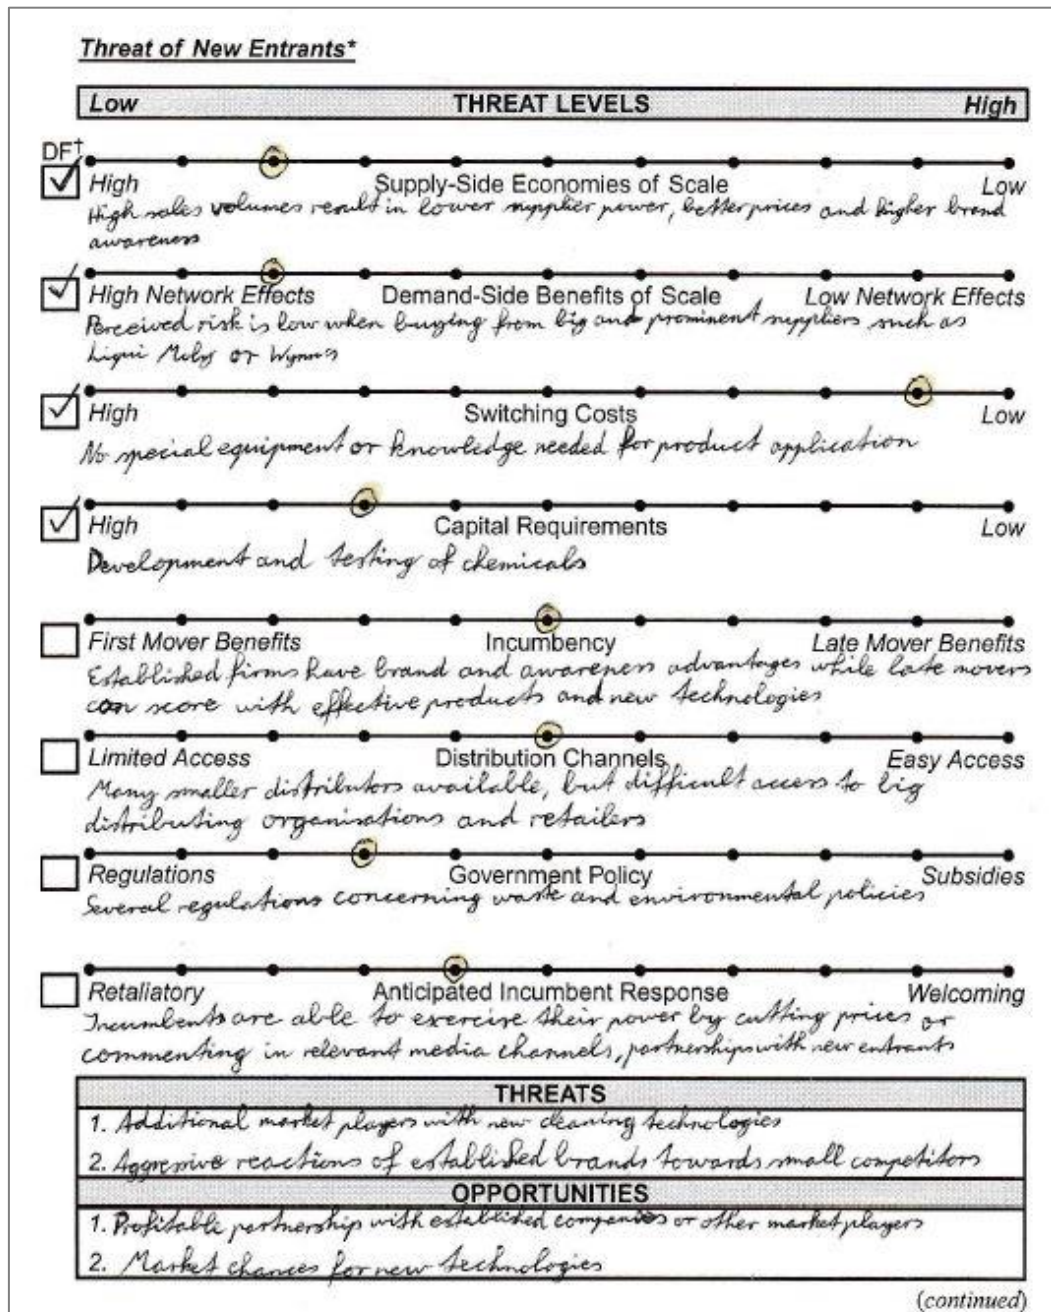 Threat of New Entrants*
Low THREAT LEVELS High
DF†
High Supply-Side Economies of Scale Low
High sales volumes result in lower supplier power, better prices and higher brand
awareness
High Network Effects Demand-Side Benefits of Scale Low Network Effects
Perceived risk is low when buying from big and prominent suppliers such as
Liqui Moly or Wynns
High Switching Costs Low
No special equipment or knowledge needed for product application
High Capital Requirements Low
Development and testing of chemicals
First Mover Benefits Incumbency Late Mover Benefits
Established firms have brand and awareness advantages while late movers
can score with effective products and new technologies
Limited Access Distribution Channels Easy Access
Many smaller distributors available, but difficult access to big
distributing organisations and retailers
Regulations Government Policy Subsidies
Several regulations concerning waste and environmental policies
Retaliatory Anticipated Incumbent Response Welcoming
Incumbents are able to exercise their power by cutting prices or
commenting in relevant media channels, partnerships with new entrants
THREATS
1. Additional market players with new cleaning technologies
2. Aggressive reactions of established brands towards small competitors
OPPORTUNITIES
1. Profitable partnership with established companies or other market players
2. Market chances for new technologies
(continued)